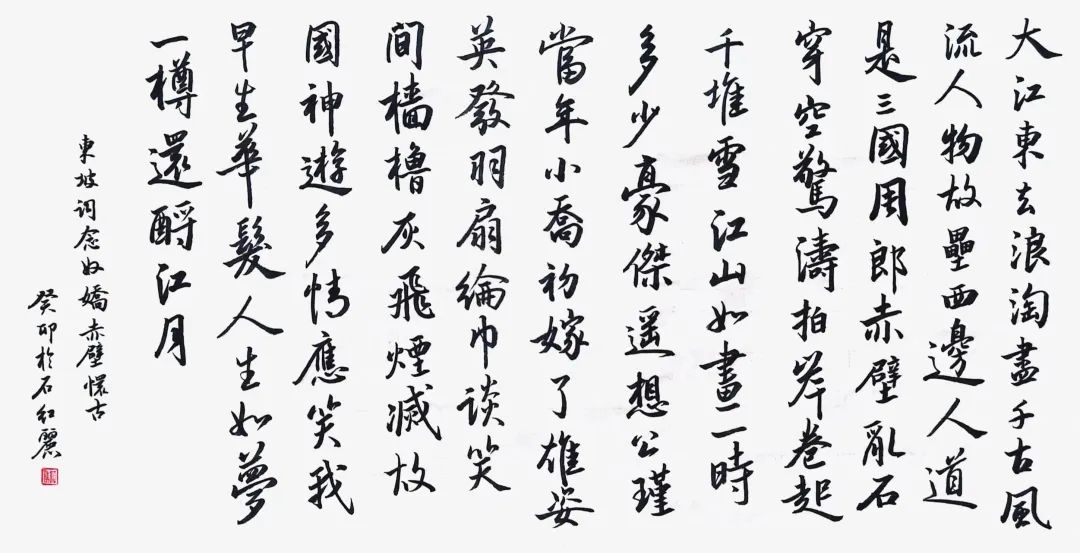 大江東去浪淘盡千古風
流人物故壘西邊人道
是三國周郎赤壁亂石
穿空驚濤拍岸卷起
千堆雪江山如畫一時
多少豪傑遥想公瑾
當年小喬初嫁了雄姿
英發羽扇綸巾談笑
間檣櫓灰飛煙滅故
國神遊多情應笑我
早生華髮人生如夢
一樽還酹江月
東坡词念奴嬌赤壁懷古
癸卯於石红麗